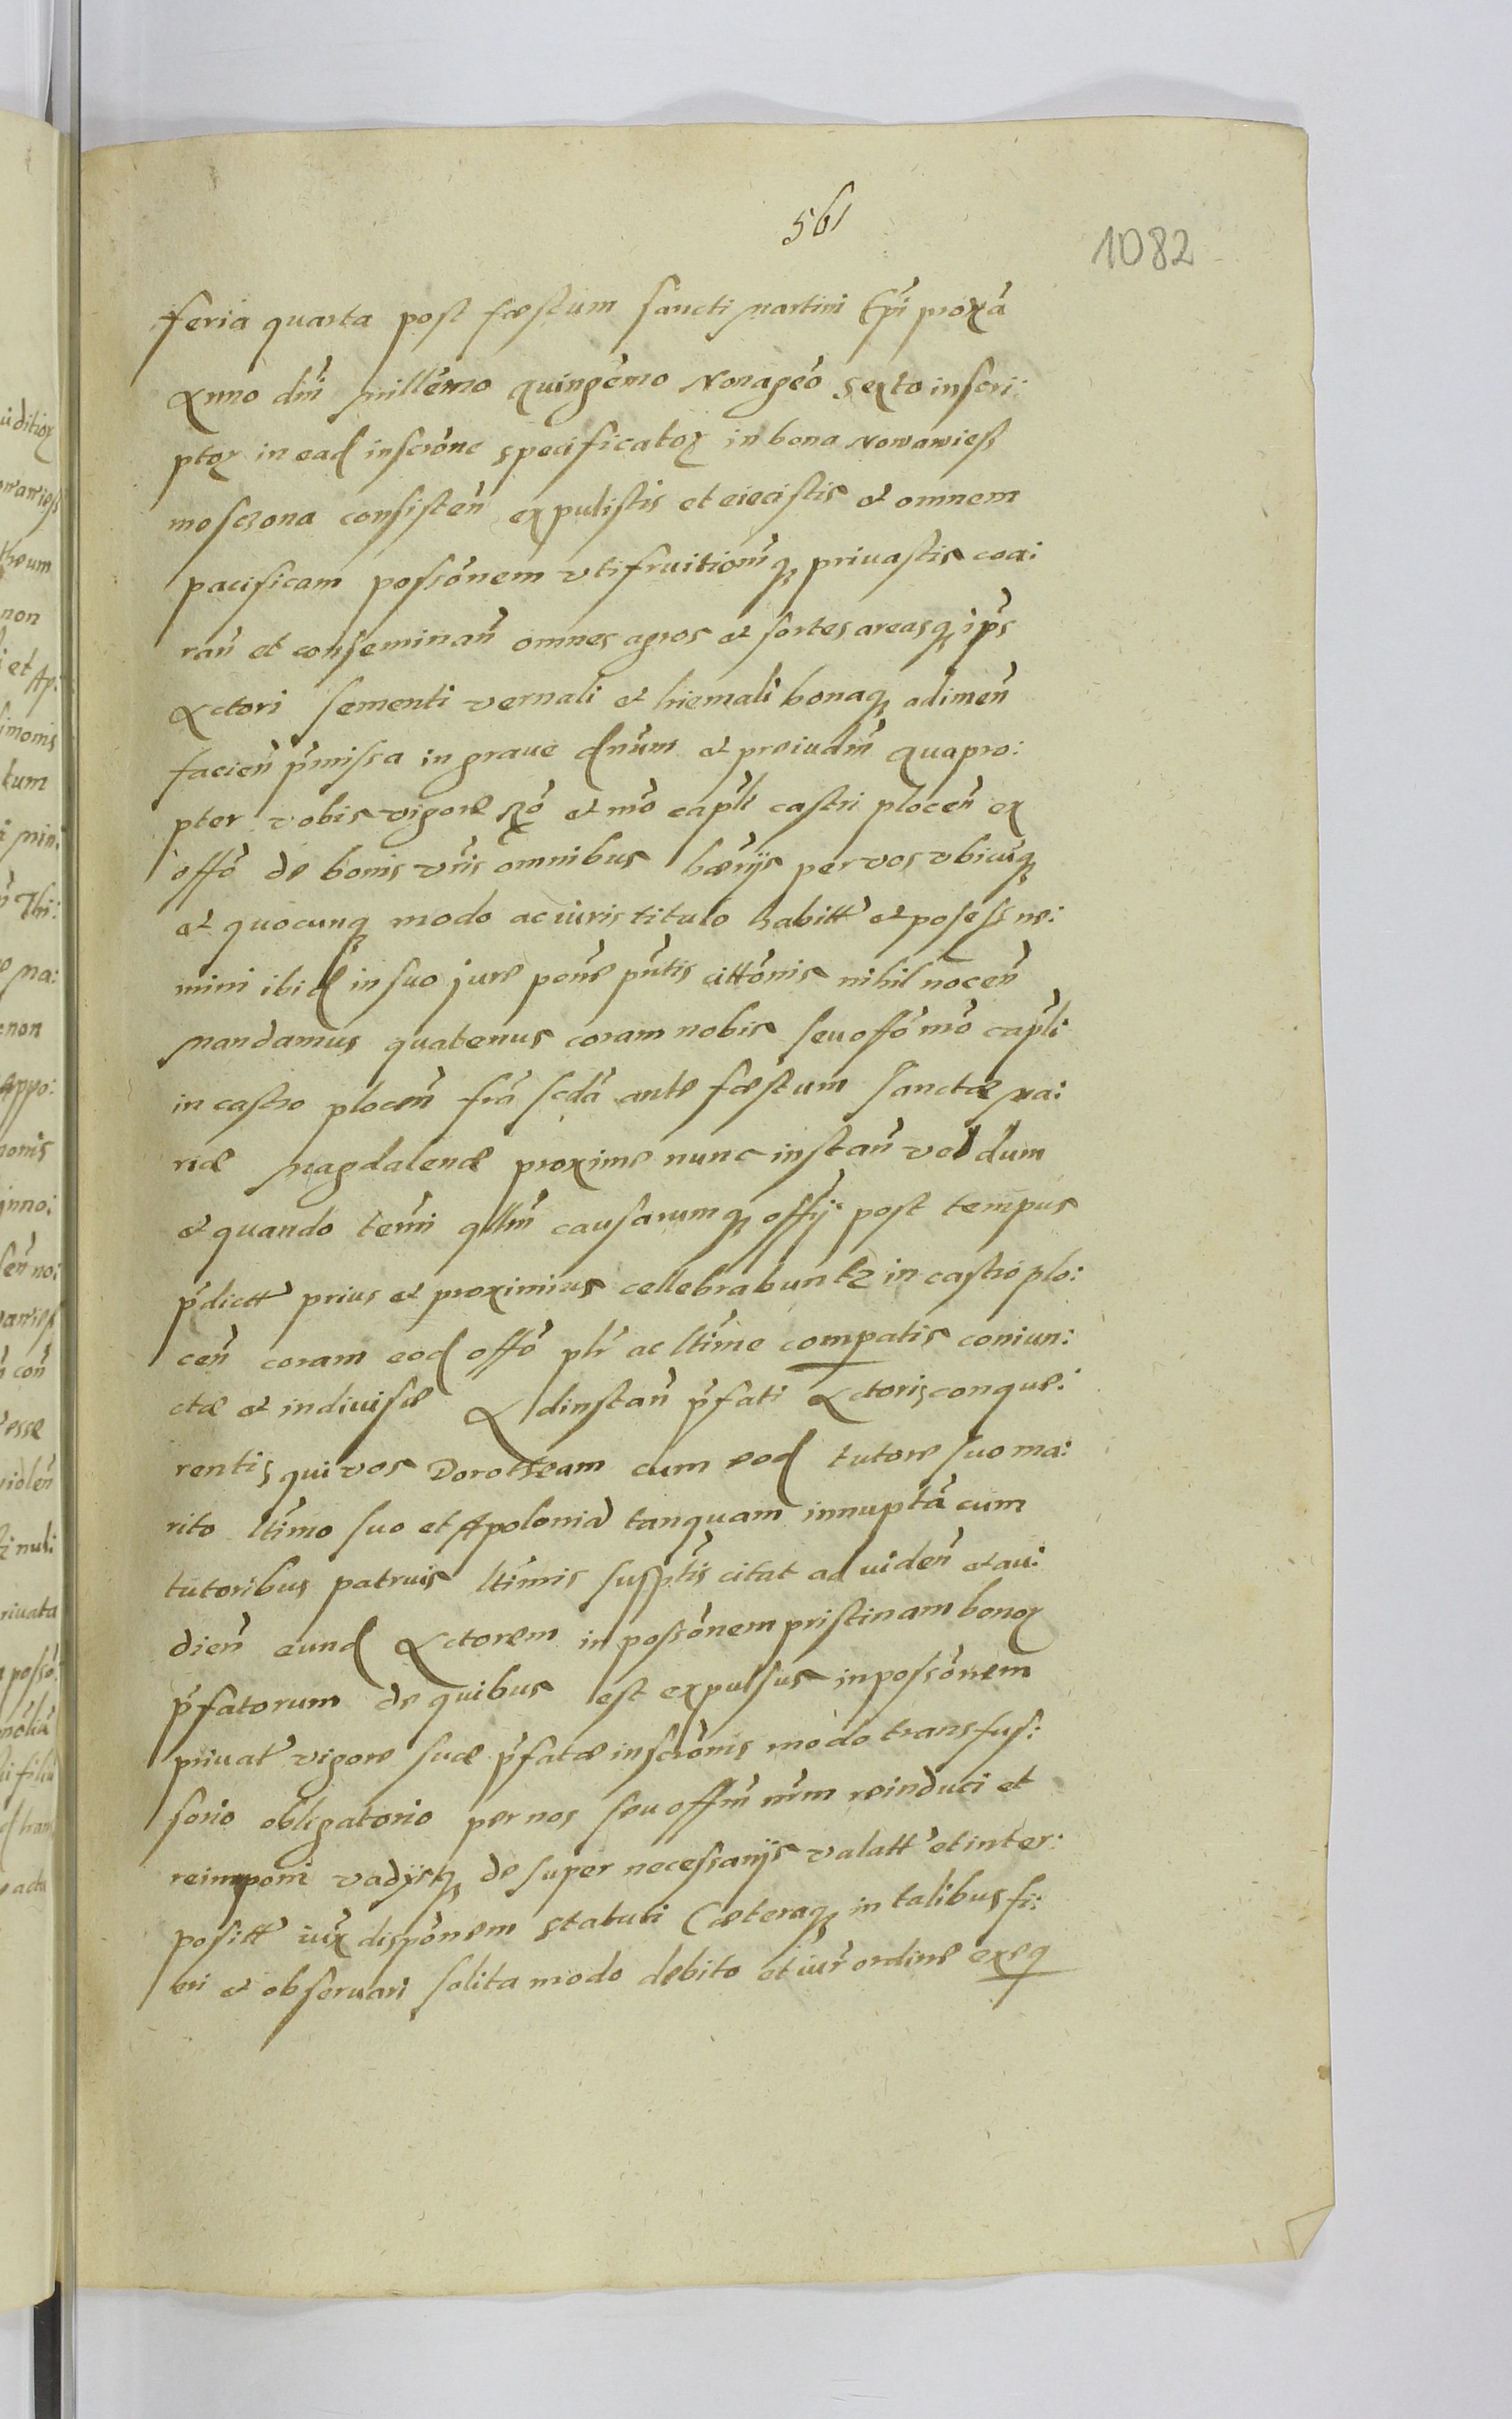 561
1082
feria quarta post fæstum sancti Martini Epi proxa
Anno dni millemo quingemo Nonageo sexto inscri:
ptor in ead inscrone specificator in bona Nowawiess
moszona consisten expulistis et eiecistis et omnem
pacificam possonem utifruitionmq privastis coar:
ran et conseminan omnes agros et sortes areasq ips
Actori sementi vernali et hiemali bonaq adimen
facien pmissa in grave dnum et preiudm quapro:
pter vobis vigore Ro et mo capli castri plocen ex
offo de bonis vris omnibus hæriis per vos ubicuq
et quocunq modo ac iuris titulo habitt et possess ne:
mini ibid in suo jure pone pntis cittonis nihil nocen
Mandamus quatenus coram nobis seu offo mo capli
in castro plocen fra scda ante fæstum Sanctæ Ma:
riæ Magdalenæ proxime nunc instan vel dum
et quando termi qllm causarumq offij post tempus
pdictt prius et proximius cellebrabuntr in castro plo:
cen coram eod offo plr ac ltime compatis coniun:
ctæ et indivisæ Adinstan pfati Actoris conque:
rentis qui vos Dorotheam cum eod tutore suo ma:
rito ltimo suo et Apolonia tanquam innupta cum
tutoribus patruis ltimis susptis citat ad viden et au:
dien eund Actorem in possonem pristinam bonor
pfatorum de quibus est expulsus in possonem
privat vigore suæ pfatæ inscronis modo transfus:
sorio obligatorio per nos seu offm nrm reinduci et
reimponi vadysq de super necessariis valatt et inter:
positt iux disponem statuti Cæteraq in talibus fi:
eri et observari solita modo debito et iur ordine exeq